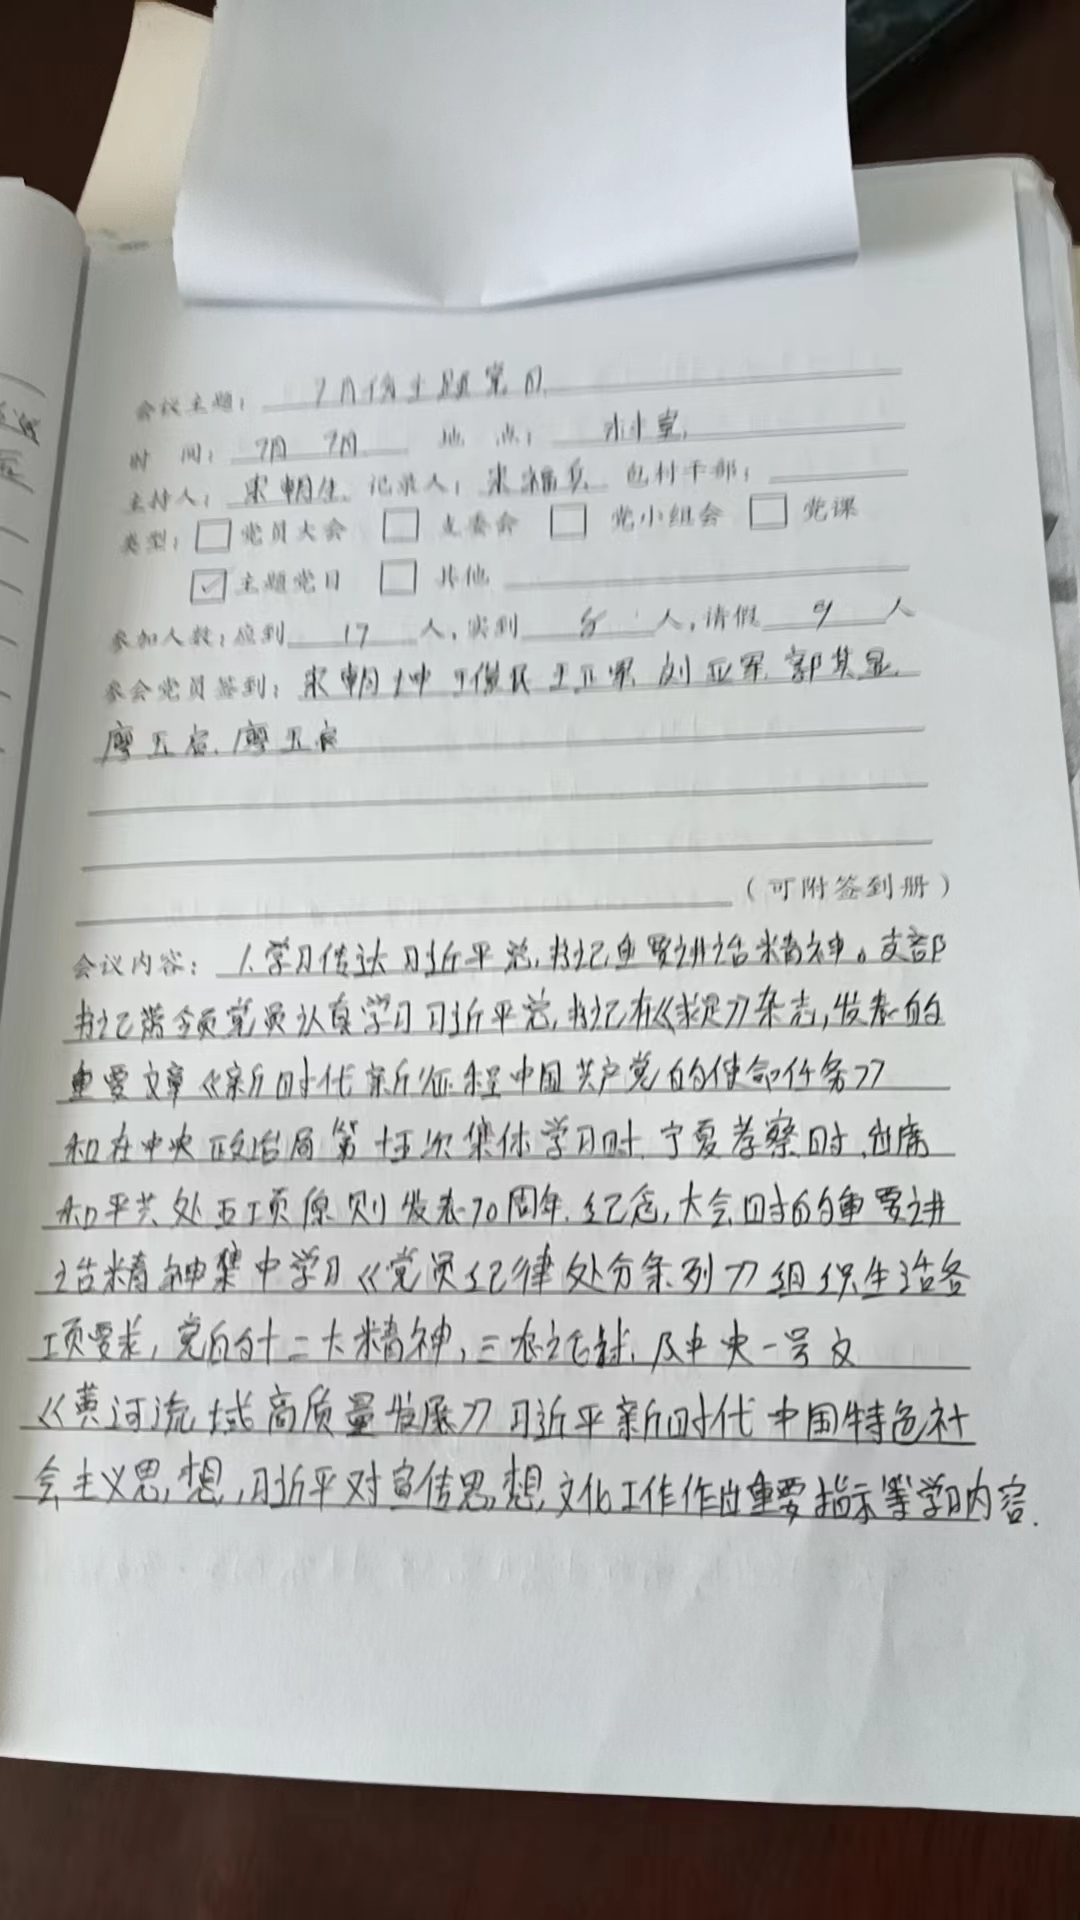 会议主题：7月份主题党日
时 间：7月 7月 地 点：村室
主持人：宋朝生 记录人：宋福兵 包村干部：
类型：□党员大会 □支委会 □党小组会 □党课
☑主题党日 □其他
参加人数：应到 17 人，实到 8 人，请假 9 人
参会党员签到：宋朝坤 王俊民 王卫军 刘亚军 郭其显
廖五启、廖五
（可附签到册）
会议内容：1.学习传达习近平总书记重要讲话精神。支部
书记带领全员党员认真学习习近平总书记在《求是》杂志，发表的
重要文章《新时代新征程中国共产党的使命任务》
和在中央政治局第十五次集体学习时、宁夏考察时、出席
和平共处五项原则发表70周年纪念，大会时的重要讲
话精神集中学习《党员纪律处分条列》组织生活各
项要求，党的廿二大精神，三农，及中央一号文
《黄河流域高质量发展》习近平新时代中国特色社
会主义思想，习近平对宣传思想文化工作作出重要指示等学习内容.